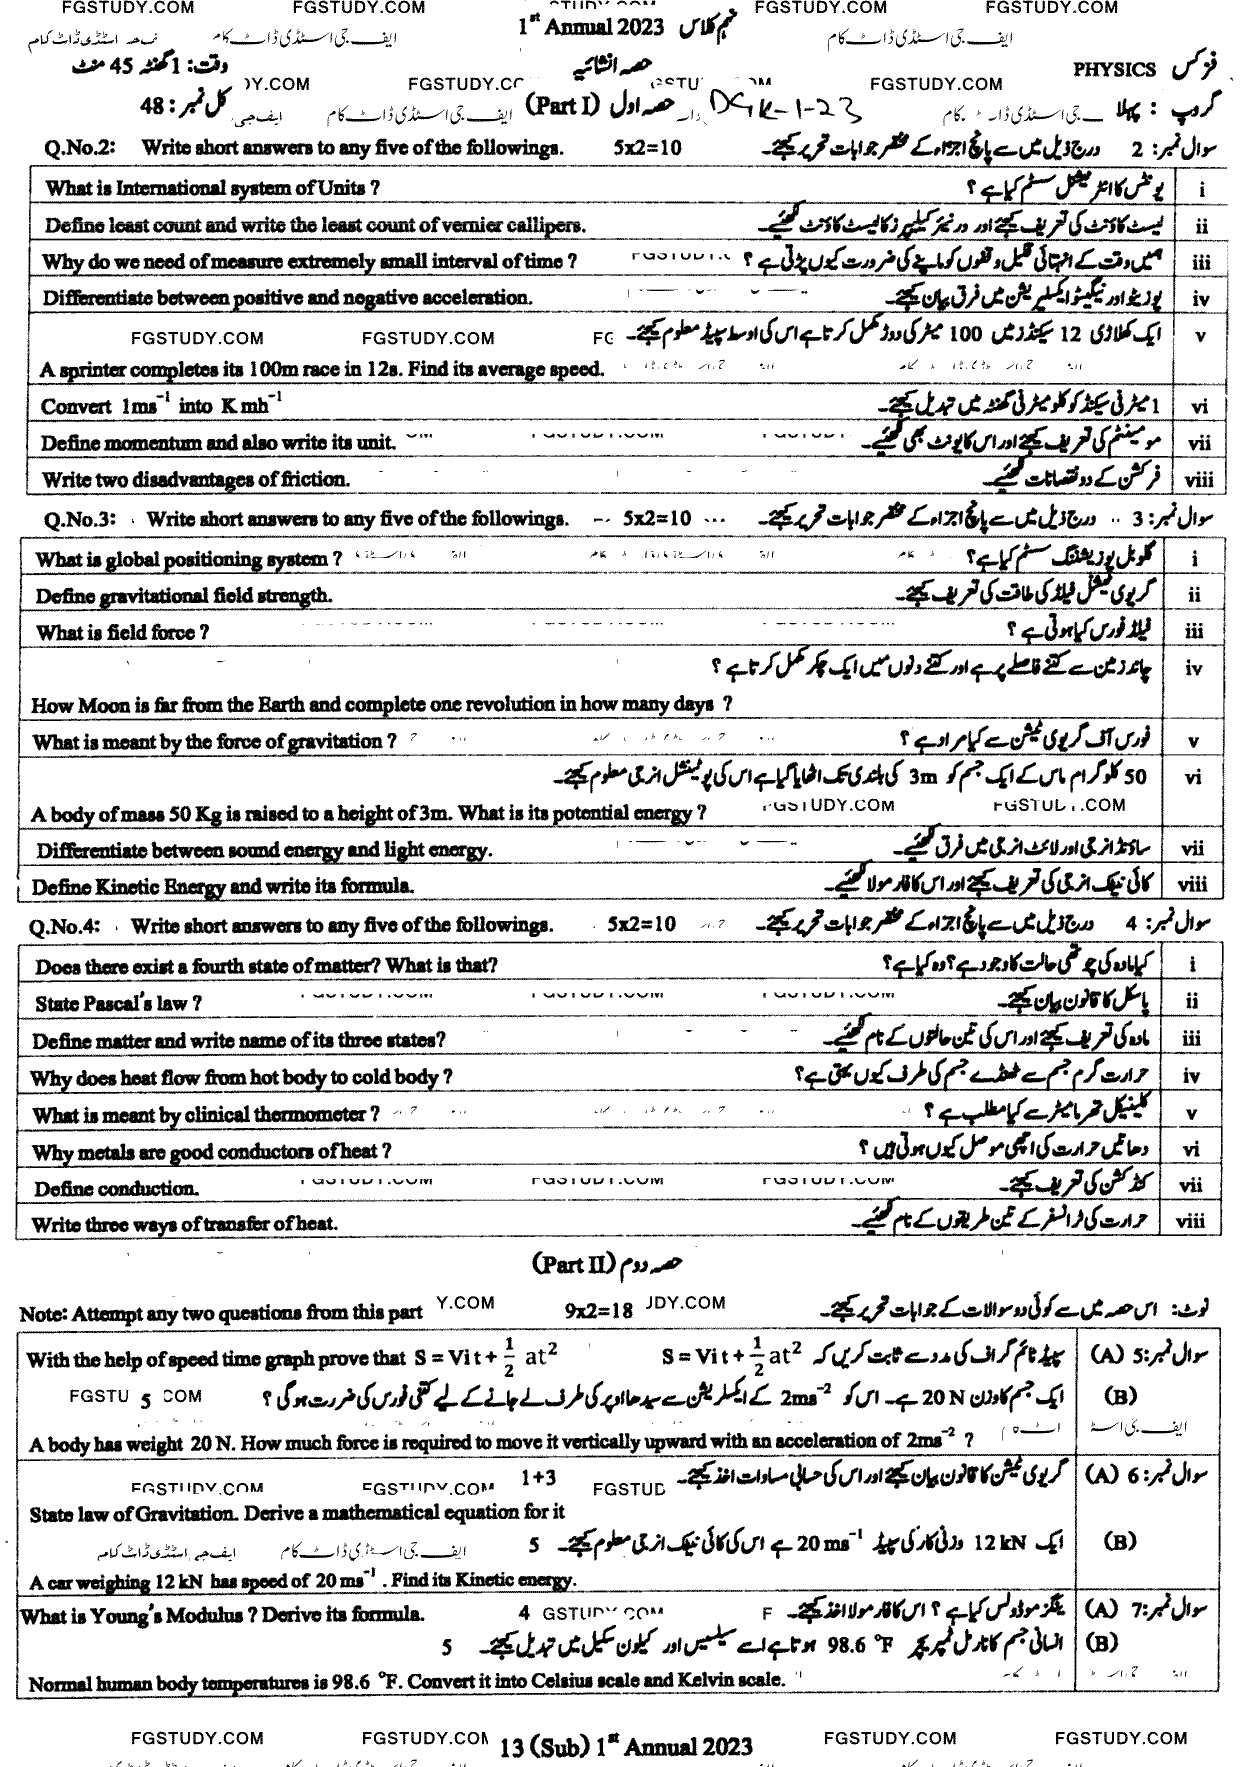 FGSTUDY.COM FGSTUDY.COM FGSTUDY.COM FGSTUDY.COM
1st Annual 2023 نہم کلاس
ایف جی اسٹڈی ڈاٹ کام ایف جی اسٹڈی ڈاٹ کام
PHYSICS فزکس حصہ انشائیہ وقت: 1 گھنٹہ 45 منٹ
FGSTUDY.COM
گروپ: پہلا DGK-1-23 حصہ اول (Part I) کل نمبر: 48
Q.No.2: Write short answers to any five of the followings. 5x2=10 سوال نمبر: 2 درج ذیل میں سے پانچ اجزاء کے مختصر جوابات تحریر کیجئے۔
What is International system of Units ? یونٹس کا انٹرنیشنل سسٹم کیا ہے ؟ i
Define least count and write the least count of vernier callipers. لیسٹ کاؤنٹ کی تعریف کیجئے اور ورنیئر کیلیپرز کا لیسٹ کاؤنٹ لکھئیے۔ ii
Why do we need of measure extremely small interval of time ? ہمیں وقت کے انتہائی قلیل وقفوں کو ماپنے کی ضرورت کیوں پڑتی ہے ؟ iii
Differentiate between positive and negative acceleration. پوزیٹو اور نیگیٹو ایکسلریشن میں فرق بیان کیجئے۔ iv
FGSTUDY.COM FGSTUDY.COM ایک کھلاڑی 12 سیکنڈز میں 100 میٹر کی دوڑ مکمل کرتا ہے اس کی اوسط سپیڈ معلوم کیجئے۔ v
A sprinter completes its 100m race in 12s. Find its average speed.
Convert 1ms⁻¹ into Kmh⁻¹ 1 میٹر فی سیکنڈ کو کلومیٹر فی گھنٹہ میں تبدیل کیجئے۔ vi
Define momentum and also write its unit. مومینٹم کی تعریف کیجئے اور اس کا یونٹ بھی لکھئیے۔ vii
Write two disadvantages of friction. فرکشن کے دو نقصانات لکھئیے۔ viii
Q.No.3: Write short answers to any five of the followings. 5x2=10 سوال نمبر: 3 درج ذیل میں سے پانچ اجزاء کے مختصر جوابات تحریر کیجئے۔
What is global positioning system ? گلوبل پوزیشننگ سسٹم کیا ہے؟ i
Define gravitational field strength. گریوی ٹیشنل فیلڈ کی طاقت کی تعریف کیجئے۔ ii
What is field force ? فیلڈ فورس کیا ہوتی ہے ؟ iii
چاند زمین سے کتنے فاصلے پر ہے اور کتنے دنوں میں ایک چکر مکمل کرتا ہے ؟ iv
How Moon is far from the Earth and complete one revolution in how many days ?
What is meant by the force of gravitation ? فورس آف گریوی ٹیشن سے کیا مراد ہے ؟ v
50 کلوگرام ماس کے ایک جسم کو 3m کی بلندی تک اٹھایا گیا ہے اس کی پوٹینشل انرجی معلوم کیجئے۔ vi
A body of mass 50 Kg is raised to a height of 3m. What is its potential energy ? FGSTUDY.COM FGSTUDY.COM
Differentiate between sound energy and light energy. ساؤنڈ انرجی اور لائٹ انرجی میں فرق لکھئیے۔ vii
Define Kinetic Energy and write its formula. کائی نیٹک انرجی کی تعریف کیجئے اور اس کا فارمولا لکھئیے۔ viii
Q.No.4: Write short answers to any five of the followings. 5x2=10 سوال نمبر: 4 درج ذیل میں سے پانچ اجزاء کے مختصر جوابات تحریر کیجئے۔
Does there exist a fourth state of matter? What is that? کیا مادہ کی چوتھی حالت کا وجود ہے؟ وہ کیا ہے؟ i
State Pascal's law ? پاسکل کا قانون بیان کیجئے۔ ii
Define matter and write name of its three states? مادہ کی تعریف کیجئے اور اس کی تین حالتوں کے نام لکھئیے۔ iii
Why does heat flow from hot body to cold body ? حرارت گرم جسم سے ٹھنڈے جسم کی طرف کیوں بہتی ہے؟ iv
What is meant by clinical thermometer ? کلینیکل تھرمامیٹر سے کیا مطلب ہے ؟ v
Why metals are good conductors of heat ? دھاتیں حرارت کی اچھی موصل کیوں ہوتی ہیں ؟ vi
Define conduction. کنڈکشن کی تعریف کیجئے۔ vii
Write three ways of transfer of heat. حرارت کی ٹرانسفر کے تین طریقوں کے نام لکھئیے۔ viii
حصہ دوم (Part II)
Note: Attempt any two questions from this part 9x2=18 نوٹ: اس حصہ میں سے کوئی دو سوالات کے جوابات تحریر کیجئے۔
With the help of speed time graph prove that S = Vit + 1/2 at² S = Vit + 1/2 at² سپیڈ ٹائم گراف کی مدد سے ثابت کریں کہ سوال نمبر:5 (A)
5 ایک جسم کا وزن 20 N ہے۔ اس کو 2ms⁻² کے ایکسلریشن سے سیدھا اوپر کی طرف لے جانے کے لیے کتنی فورس کی ضرورت ہوگی ؟ (B)
A body has weight 20 N. How much force is required to move it vertically upward with an acceleration of 2ms⁻² ?
1+3 گریوی ٹیشن کا قانون بیان کیجئے اور اس کی حسابی مساوات اخذ کیجئے۔ سوال نمبر: 6 (A)
State law of Gravitation. Derive a mathematical equation for it
5 ایک 12 kN وزنی کار کی سپیڈ 20 ms⁻¹ ہے اس کی کائی نیٹک انرجی معلوم کیجئے۔ (B)
A car weighing 12 kN has speed of 20 ms⁻¹ . Find its Kinetic energy.
What is Young's Modulus ? Derive its formula. 4 ینگز موڈولس کیا ہے ؟ اس کا فارمولا اخذ کیجئے۔ سوال نمبر:7 (A)
5 انسانی جسم کا نارمل ٹمپریچر 98.6 °F ہوتا ہے اسے سیلسیس اور کیلون سکیل میں تبدیل کیجئے۔ (B)
Normal human body temperatures is 98.6 °F. Convert it into Celsius scale and Kelvin scale.
FGSTUDY.COM 13 (Sub) 1st Annual 2023 FGSTUDY.COM FGSTUDY.COM